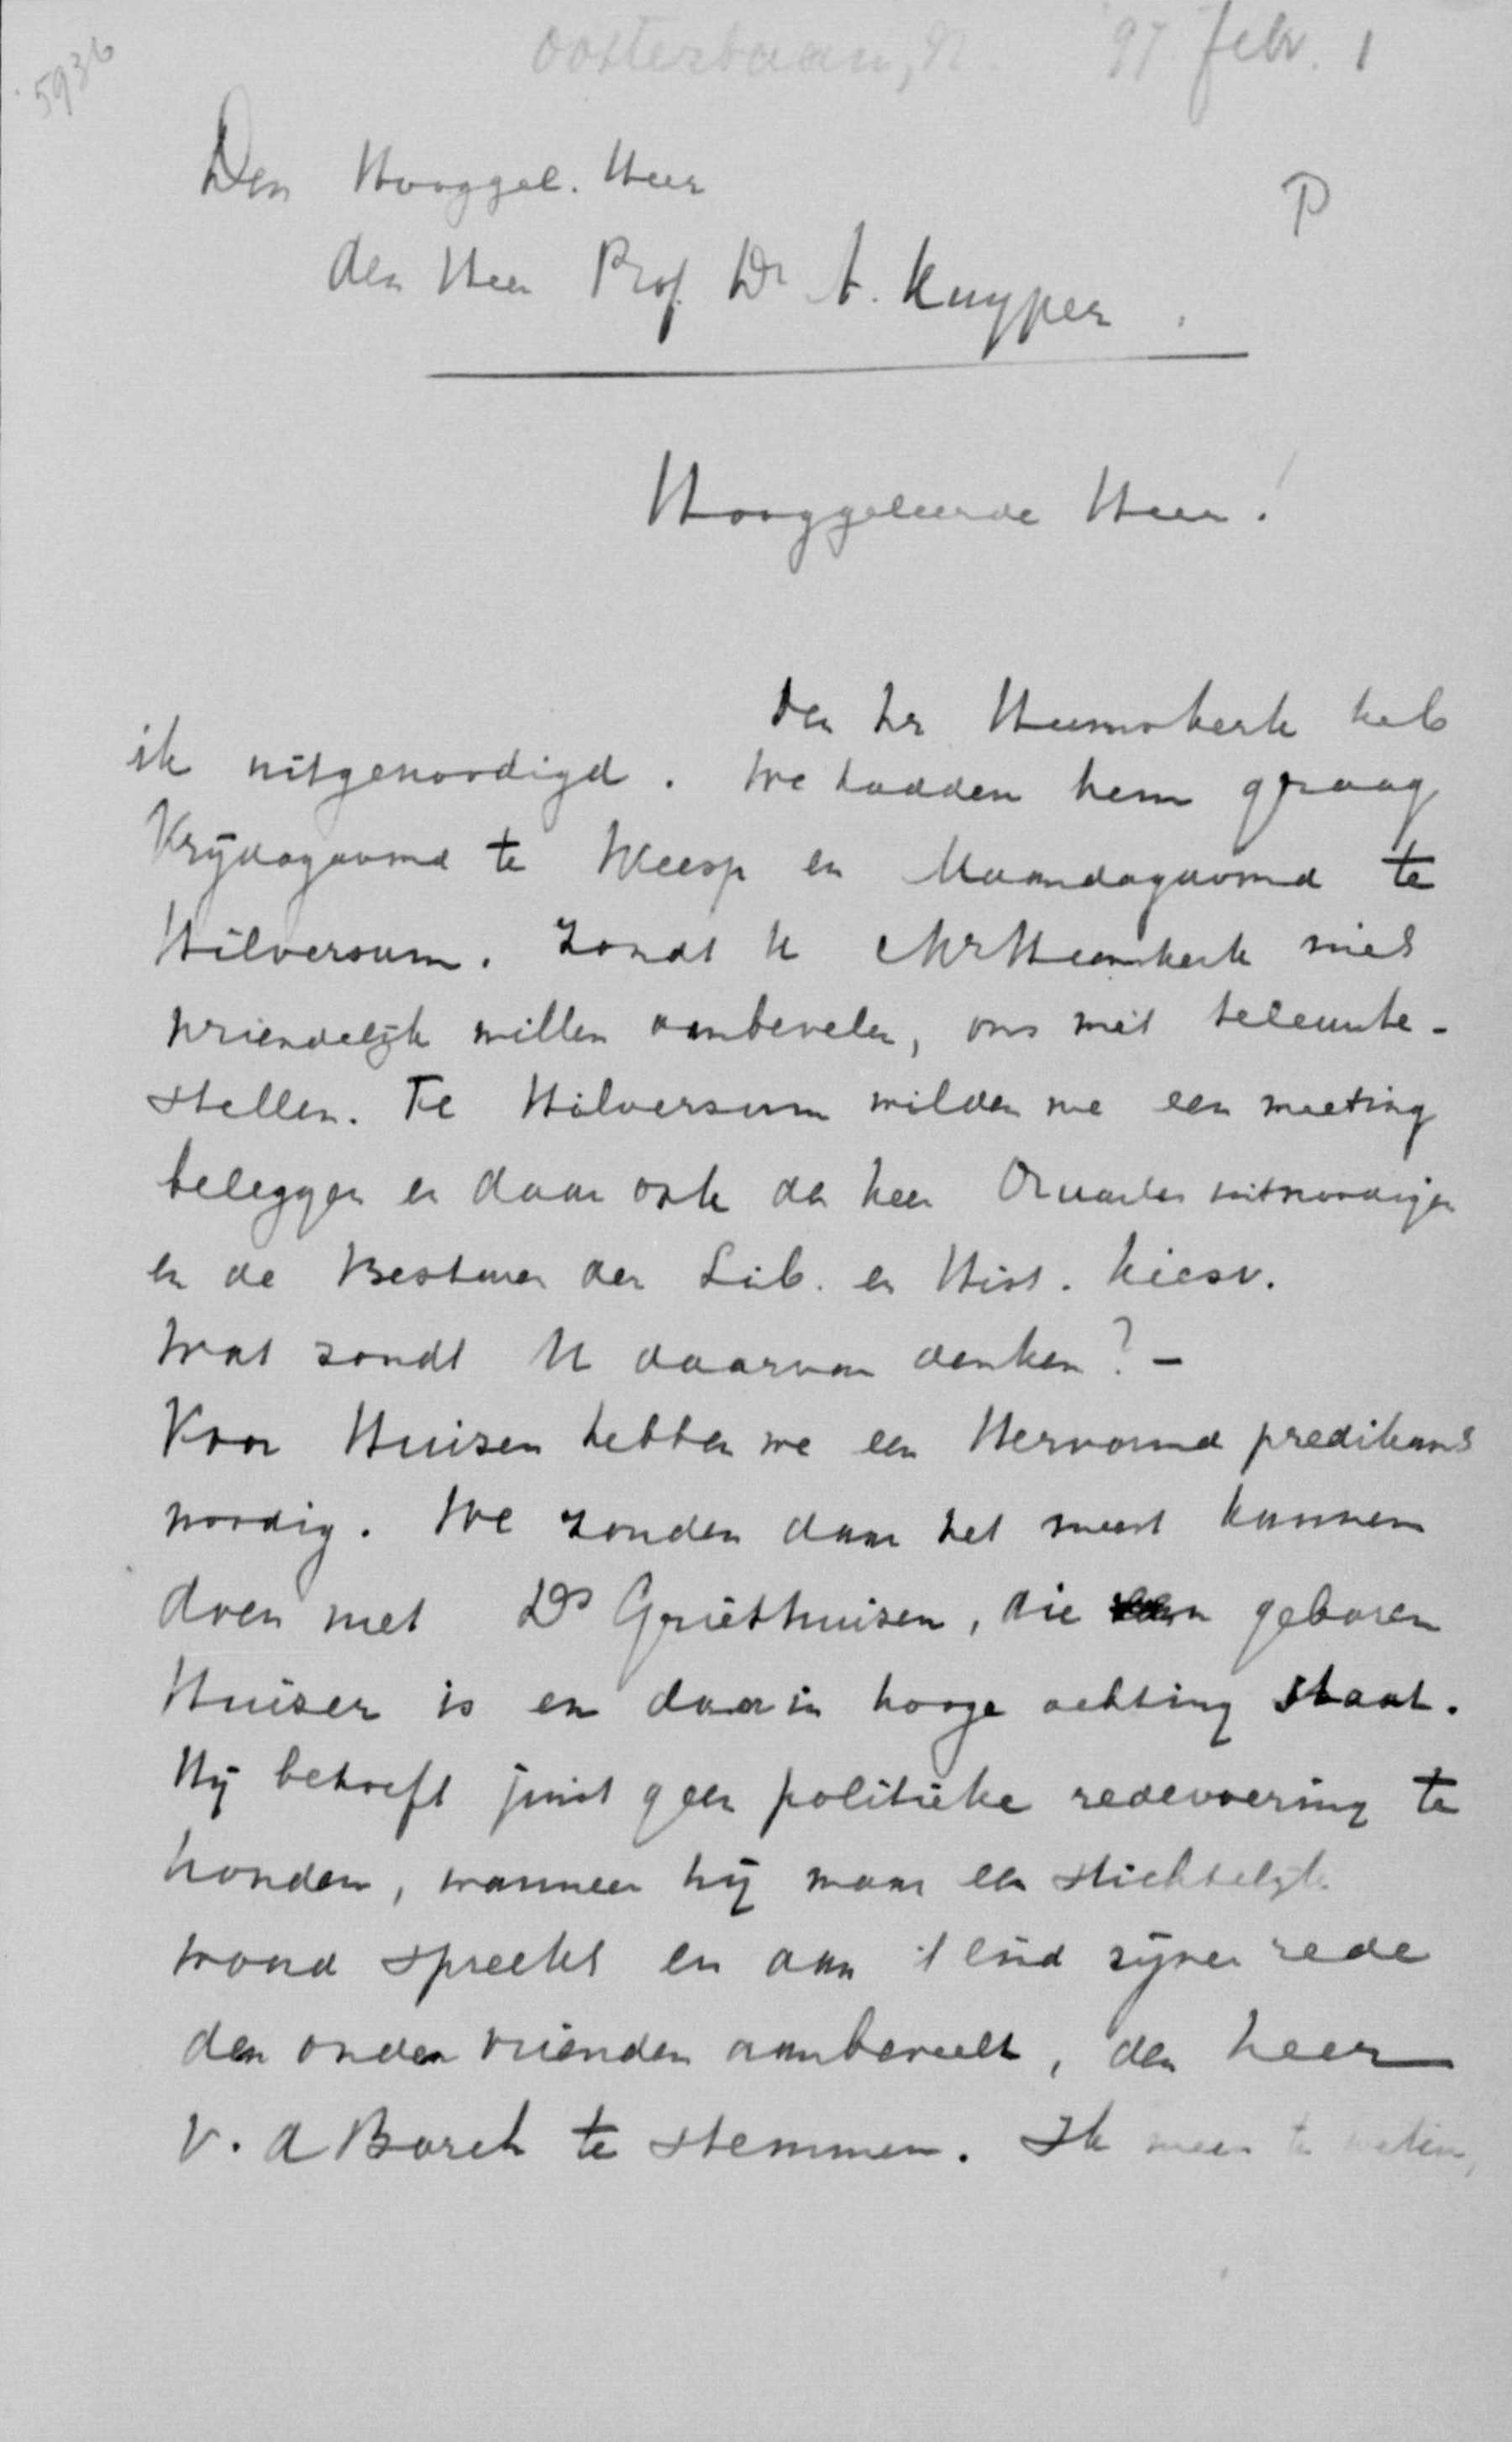 5936
Oosterbaan, N. '97 febr. 1
Den Hooggel. Heer
P
den Heer Prof. Dr A. Kuyper.
Hooggeleerde Heer!
Den hr Heemskerk heb
ik uitgenoodigd. We hadden hem graag
Vrijdagavond te Weesp en Maandagavond te
Hilversum. Zoudt U Mr Heemskerk niet
vriendelijk willen aanbevelen, ons niet teleurte-
stellen. Te Hilversum wilden we een meeting
beleggen en daar ook den heer uitnoodigen
en de Besturen der Lib. en Hist. Kiesv.
Wat zoudt U daarvan denken? -
Voor Huizen hebben we een Hervormd predikant
noodig. We zouden daar het meest kunnen
doen met Ds Griethuisen, die geboren
Huizer is en daar in hooge achting staat.
Hij behoeft juist geen politieke redevoering te
houden, wanneer hij maar een stichtelijk
woord spreekt en aan 't eind zijner rede
den ouden vrienden aanbeveelt, den heer
v. d Borch te stemmen. Ik meen te weten,